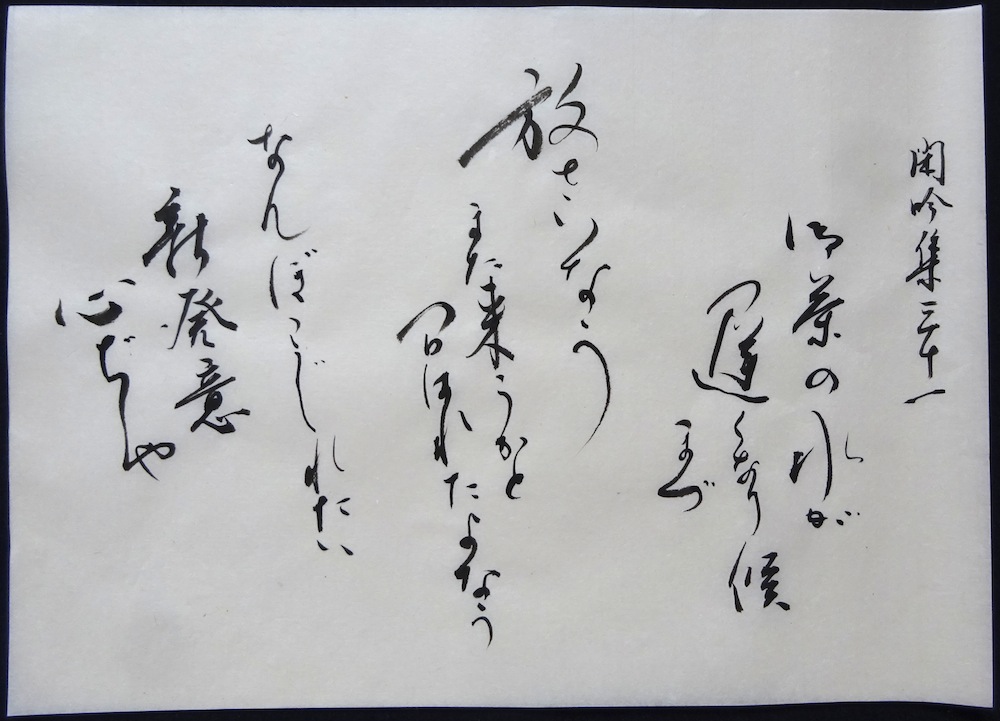 閑吟集三十一
御茶の水が
遅くなり候
まづ
放さいなう
また来うかと
問はれたよなう
なんぼこじれたい
新発意
心ぢや